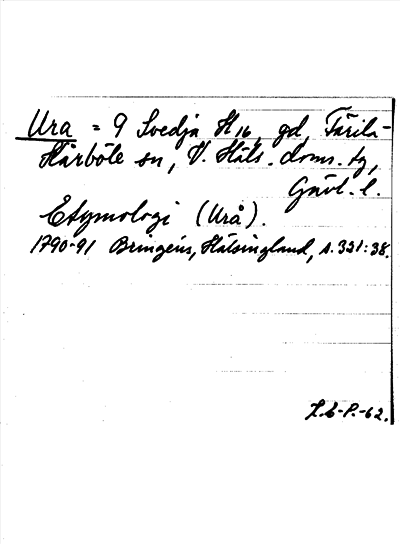 Ura = 9 Svedja St 16, gd, Färila-
Kårböle sn, V. Häls. doms. tg,
Gävl. l.
Etymologi (Urå).
1790-91 Bringéus, Hälsingland, s. 331:38.
L.b-P.-62.